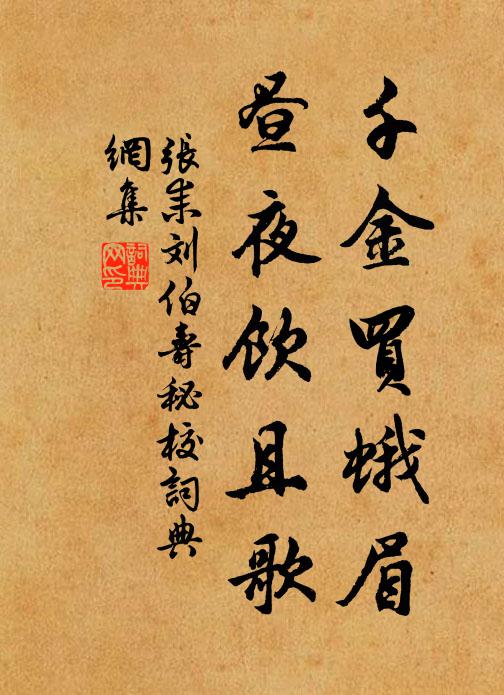 千金買蛾眉
昼夜飲且歌
張耒刘伯壽秘校詞典
網集
詞典
网印